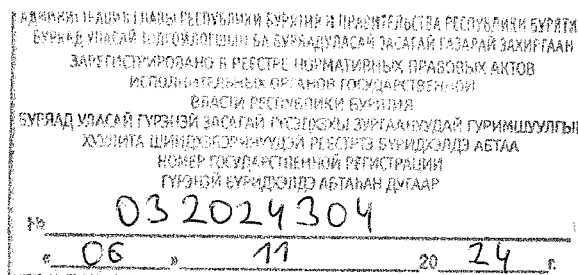 АДМИНИСТРАЦИЯ ГЛАВЫ РЕСПУБЛИКИ БУРЯТИЯ И ПРАВИТЕЛЬСТВА РЕСПУБЛИКИ БУРЯТИ
БУРЯАД УЛАСАЙ ТОЛГОЙЛОГШЫН БА БУРЯАД УЛАСАЙ ЗАСАГАЙ ГАЗАРАЙ ЗАХИРГААН
ЗАРЕГИСТРИРОВАНО В РЕЕСТРЕ НОРМАТИВНЫХ ПРАВОВЫХ АКТОВ
ИСПОЛНИТЕЛЬНЫХ ОРГАНОВ ГОСУДАРСТВЕННОЙ
ВЛАСТИ РЕСПУБЛИКИ БУРЯТИЯ
БУРЯАД УЛАСАЙ ГҮРЭНЭЙ ЗАСАГАЙ ГҮЙСЭДХЭХЫ ЗУРГААНУУДАЙ ГУРИМШУУЛҺЫ
ХУУЛИТА РЕЕСТРТЭ БҮРИДХЭЛДЭ АБТАА
НОМЕР ГОСУДАРСТВЕННОЙ РЕГИСТРАЦИИ
ГҮРЭНЭЙ БҮРИДХЭЛДЭ АБТАҺАН ДУГААР
№ 032024304
« 06 » 11 20 24 г.